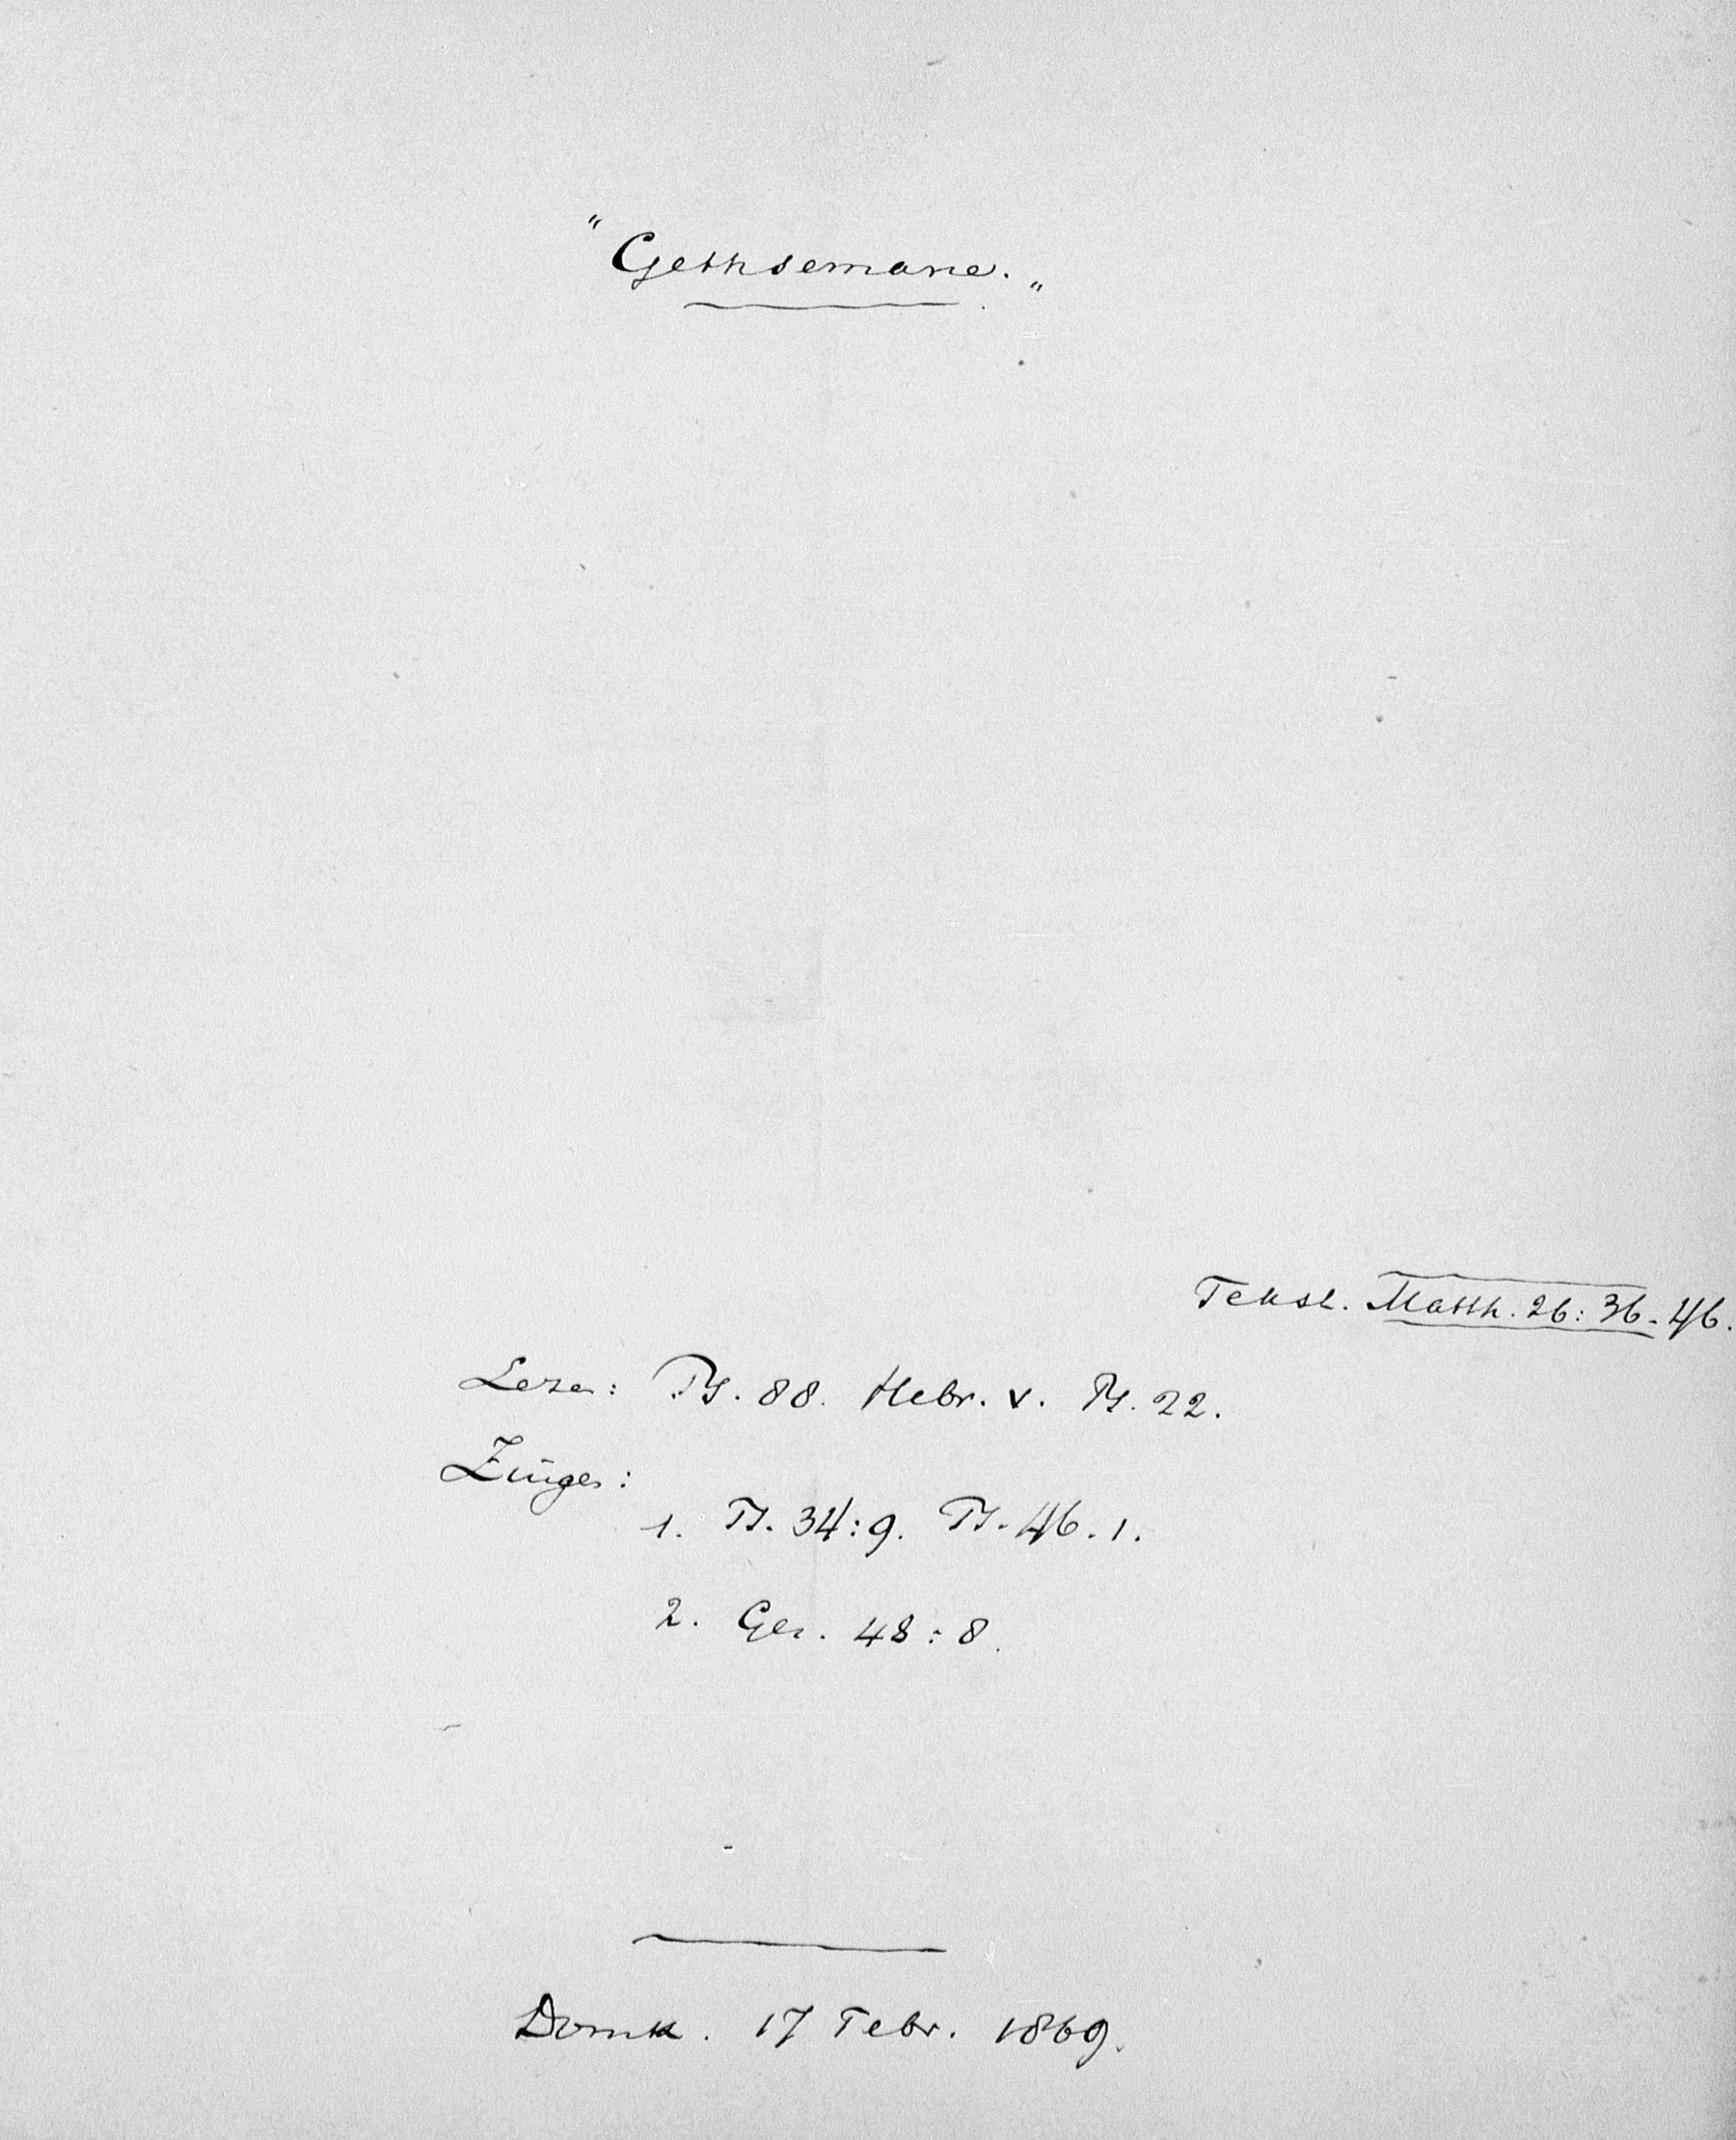 "Gethsemane."
Tekst. Matth. 26: 36-46.
Leze: Ps. 88. Hebr. V. Ps. 22.
Zingen:
1. Ps. 34:9. Ps. 46.1.
2. Gez. 48:8.
Domk. 17 Febr. 1869.